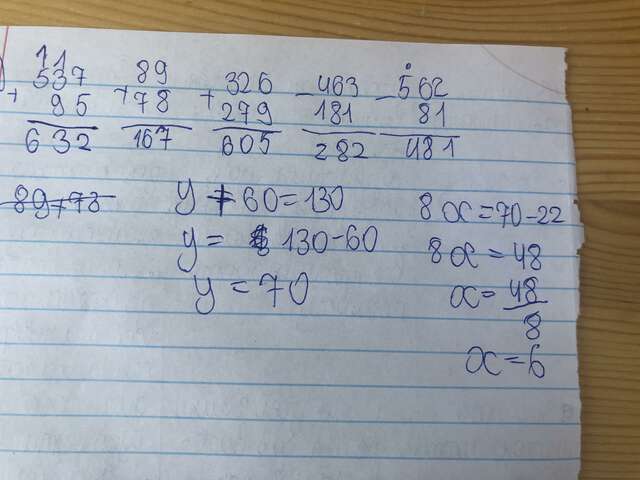 11 •
537 89 326 463 562
+ 95 +78 +279 - 181 - 81
632 167 605 282 481
89+78 y + 60=130 8x=70-22
y= 130-60 8x=48
y=70 x=48/8
x=6